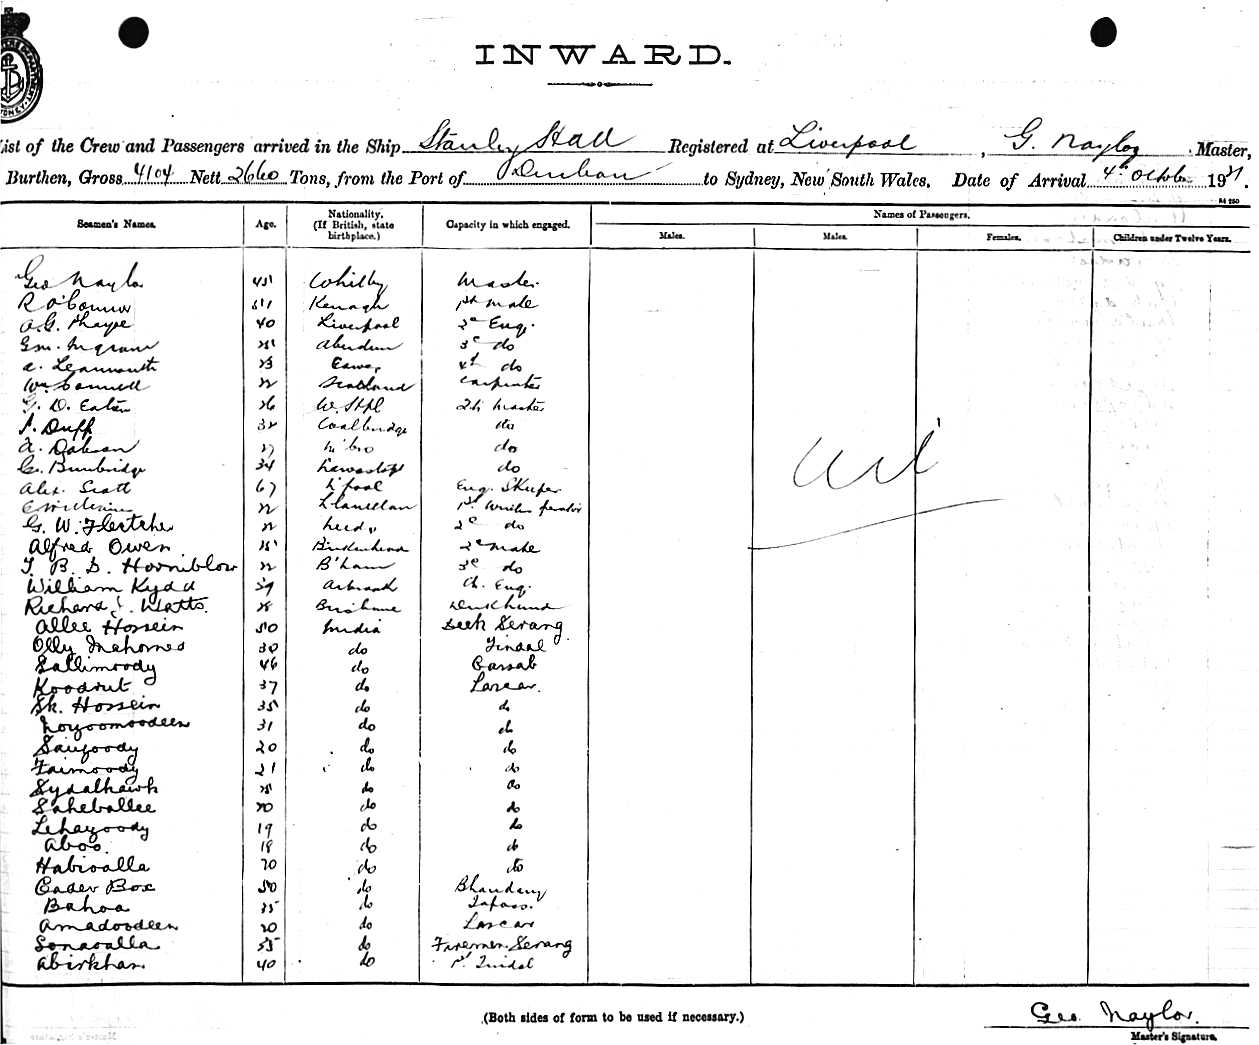 INWARD.
ist of the Crew and Passengers arrived in the Ship Stanley Hall Registered at Liverpool, G. Naylor Master,
Burthen, Gross 4104 Nett 2660 Tons, from the Port of Durban to Sydney, New South Wales, Date of Arrival 4th Octbr 1921.
Seamen's Names. Age. Nationality. (If British, state birthplace.) Capacity in which engaged. Names of Passengers.
Males. Males. Females. Children under Twelve Years.
Geo Naylor 45 Whitby Master
R O'Connor Kenagh 1st Mate
A.G. Sharpe 40 Liverpool 2nd Eng.
Ingram Aberdeen 3rd do
A. Learmonth 23 4th do
Wm Connell 22 Scotland Carpenter
G. D. Eaton 26 W. Htpl
J. Duff 32 Coatbridge do
A. Dobson 27 M'bro do
G. Bumbridge 34 do
Alex. Scott 67 L'pool
22 Llanellan 1st
G. W. Fletcher 22 Leeds 2nd do
Alfred Owen 25 Birkenhead 2nd Mate
T. B. S. Horniblow 22 B'ham 3rd do
William Kydd 39 Arbroath Ch. Eng.
Richard J. Watts. 28 Brisbane Deckhand
Allee Hossein 50 India Deck Serang
Olly Mahomed 30 do Tindal
Sallimoody 46 do Cassab
Koodrut 37 do Lascar.
Sk. Hossein 35 do do
Loyoomoodeen 31 do do
Saugoody 20 do do
Faimoody 21 do do
Sydalhawk 25 do do
Saheballee 20 do do
Lehazoody 19 do do
Aboo. 18 do do
Habivalla 20 do do
Cader Box 50 do Bhandary
Bahoa 35 do Topass.
Amadoodeen 20 do Lascar
Sonavalla 55 do Firemen Serang
Abirkhan 40 do 1st Tindal
Nil
(Both sides of form to be used if necessary.)
Geo. Naylor.
Master's Signature.